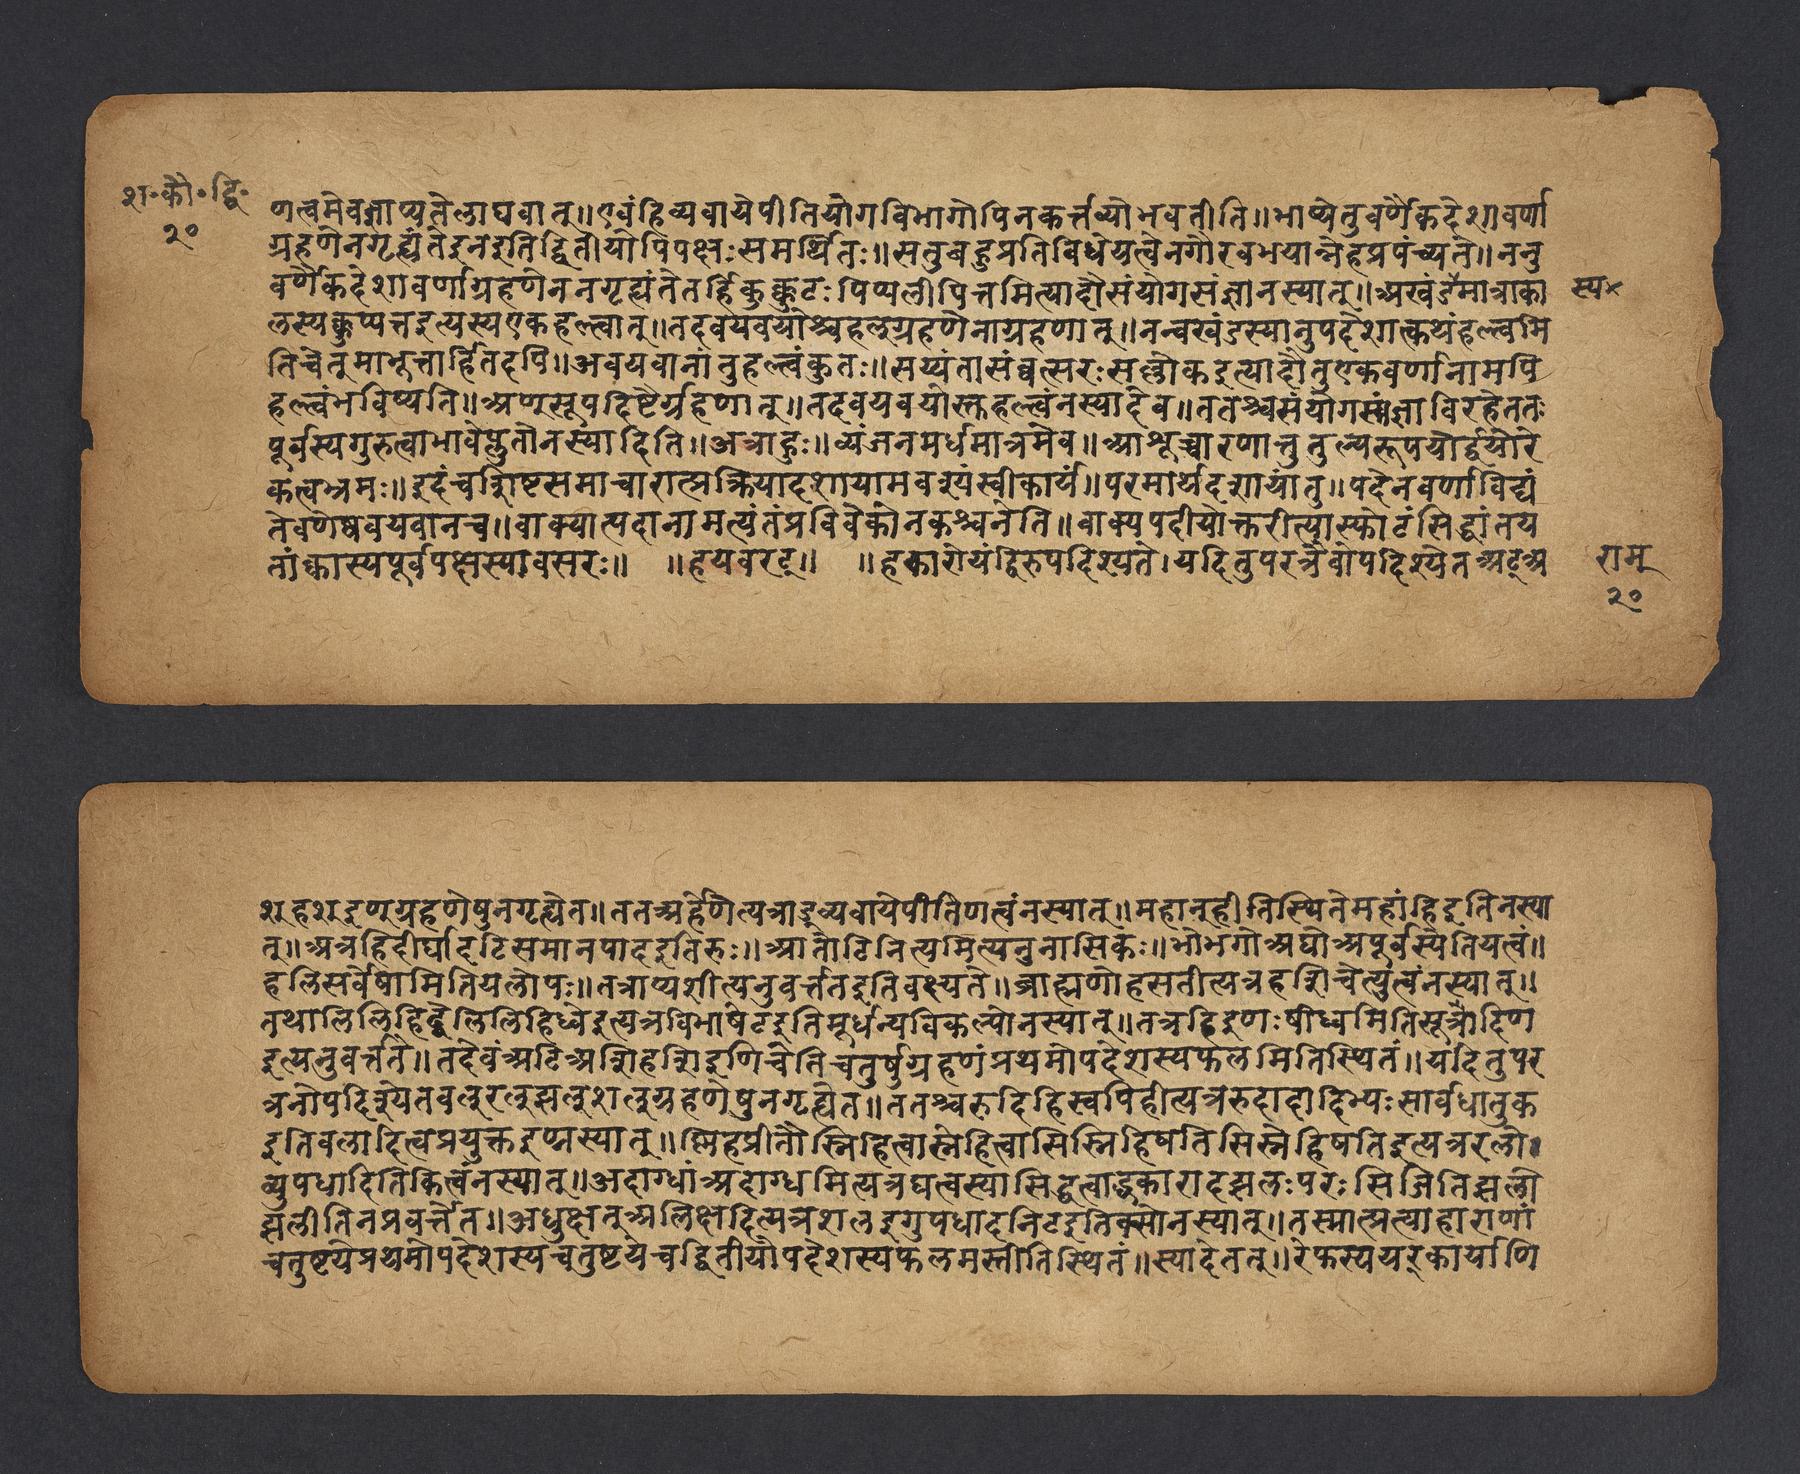 श॰कौ॰द्वि॰
२०
णत्वमेवज्ञाप्यतेलाघवात्॥एवंहिव्यवायेपीतियोगविभागोपिनकर्त्तव्योभवतीति॥भाष्येतुवर्णैकदेशावर्णा
ग्रहणेनगृह्यंतेइनइतिद्वितीयोपिपक्षःसमर्थितः॥सतुबहुप्रतिविधेयत्वेनगौरवभयान्नेहप्रपंच्यते॥ननु
वर्णैकदेशावर्णाग्रहणेननगृह्यंतेतर्हिकुक्कुटःपिप्पलीपित्तमित्यादौसंयोगसंज्ञानस्यात्॥अखंडमात्राका
स्य×
लस्यक्कुप्पत्तइत्यस्यएकहल्त्वात्॥तदवयवयोश्चहल्ग्रहणेनाग्रहणात्॥नन्वखंडस्यानुपदेशात्कथंहल्त्वमि
तिचेत्माभूत्तार्हितदपि॥अवयवानांतुहल्त्वंकुतः॥सय्यंतासंव्वत्सरःसल्लोकइत्यादौतुएकवर्णानामपि
हल्त्वंभविष्यति॥अण्सूपदिष्टैर्ग्रहणात्॥तदवयवयोस्तहल्त्वंनस्यादेव॥ततश्चसंयोगसंज्ञाविरहेततः
पूर्वस्यगुरुत्वाभावेप्लुतोनर्स्यादिति॥अत्राहुः॥व्यंजनमर्धमात्रमेव॥आशूच्चारणात्तुतुल्यरूपयोर्द्वयोरे
कत्वभ्रमः॥इदंचशिष्टसमाचारात्प्रक्रियादशायामवश्यंस्वीकार्यं॥परमार्थदशायांतु॥पदेनवर्णाविद्यं
तेवर्णेष्ववयवानच॥वाक्यात्पदानामत्यंतंप्रविवेकोनकश्चनेति॥वाक्यपदीयोक्तरीत्यास्फोटंसिद्धांतय
तांक्कास्यपूर्वपक्षस्यावसरः॥ ॥हयवरट्॥ ॥हकारोयंद्विरुपदिश्यते।यदितुपरत्रैवोपदिश्येतअट्अ
राम्
२०
श्हश्इण्ग्रहणेषुनगृह्येत॥ततअर्हेणेत्यत्राड्व्यवायेपीतिणत्वंनस्यात्॥महान्हीतिस्थितेमहांहिइतिनस्या
त्॥अत्रहिदीर्घादटिसमानपादइतिरुः॥आतोटिनित्यमित्यनुनासिकः॥भोभगोअघोअपूर्वस्येतियत्वं॥
हलिसर्वेषामितियलोपः॥तत्राप्यशीत्यनुवर्त्ततइतिवक्ष्यते॥ब्राह्मणोहसतीत्यत्रहशिचेत्युत्वंनस्यात्॥
तथालिलिहिद्वेलिलिहिध्वेइत्यत्रविभाषेटइतिमूर्धन्यविकल्पोनस्यात्॥तत्रहिइणःषीध्वमितिसूत्रादिण
इत्यनुवर्त्तते॥तदेवंअटिअशिहशिइणिचेतिचतुर्षुग्रहणंप्रथमोपदेशस्यफलमितिस्थितं॥यदितुपर
त्रनोपदिश्येतवल्रल्झल्शल्ग्रहणेषुनगृह्येत॥ततश्चरुदिहिस्वपिहीत्यत्ररुदादादिभ्यःसार्वधातुक
इतिवलादित्वप्रयुक्तइण्नस्यात्॥स्निहप्रीतौस्निहित्वास्नेहित्वासिस्निहिषतिसिस्नेहिषतिइत्यत्ररलो॰
व्युपधादितिकित्वंनस्यात्॥अदाग्धांअदाग्धमित्यत्रघत्वस्यासिद्धत्वाद्धकारादझलःपरःसिजितिझलो
झलीतिनप्रवर्त्तेत॥अधुक्षत्अलिक्षदित्यत्रशलइगुपधादनिटइतिक्सोनस्यात्॥तस्मात्प्रत्याहाराणां
चतुष्टयेप्रथमोपदेशस्यचतुष्टयेचद्वितीयोपदेशस्यफलमस्तीतिस्थितं॥स्यादेतत्॥रेफस्ययर्कार्याणि